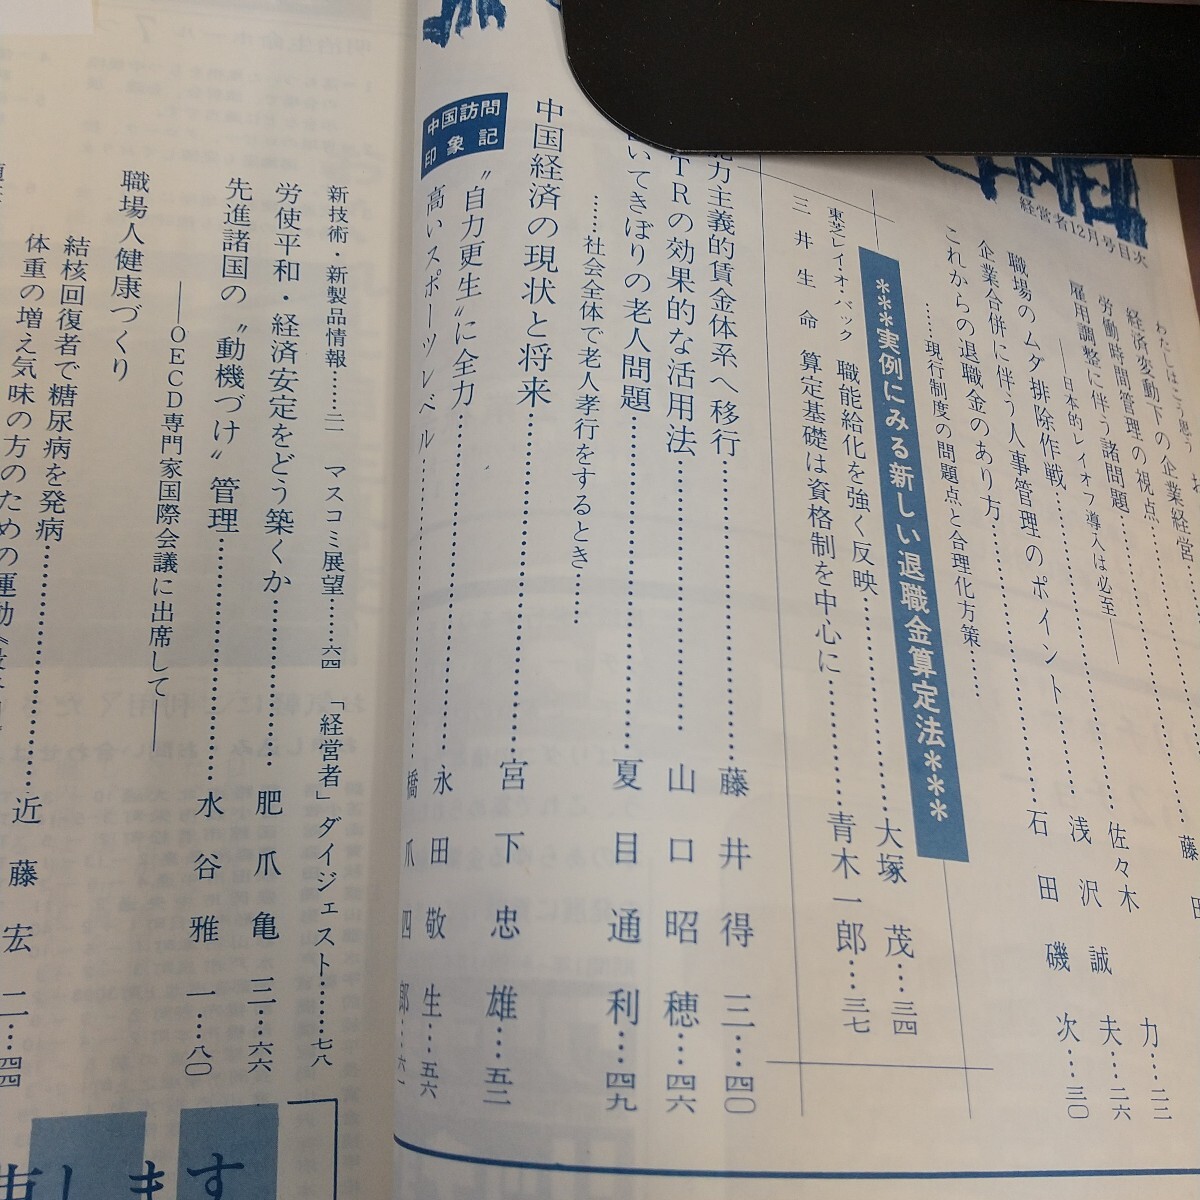 経営者12月号目次
わたしはこう思う
経済変動下の企業経営……
労働時間管理の視点……
雇用調整に伴う諸問題……佐々木 力…二二
――日本的レイオフ導入は必至――
職場のムダ排除作戦……浅沢誠夫…二六
企業合併に伴う人事管理のポイント……石田磯次…三〇
これからの退職金のあり方……
……現行制度の問題点と合理化方策……
***実例にみる新しい退職金算定法***
東芝レイ・オ・バック 職能給化を強く反映……大塚 茂…三四
三井生命 算定基礎は資格制を中心に……青木一郎…三七
力主義的賃金体系へ移行……藤井得三…四〇
TRの効果的な活用法……山口昭穂…四六
いてきぼりの老人問題……夏目通利…四九
……社会全体で老人孝行をするとき……
中国経済の現状と将来……宮下忠雄…五二
中国訪問印象記
〝自力更生〟に全力……永田敬生…五六
高いスポーツレベル……橋爪四郎…六一
新技術・新製品情報……二一 マスコミ展望……六四 「経営者」ダイジェスト……七八
労使平和・経済安定をどう築くか……肥爪亀三…六六
先進諸国の〝動機づけ〟管理……水谷雅一…八〇
――OECD専門家国際会議に出席して――
職場人健康づくり
結核回復者で糖尿病を発病……近藤宏二…四四
体重の増え気味の方のための運動
します